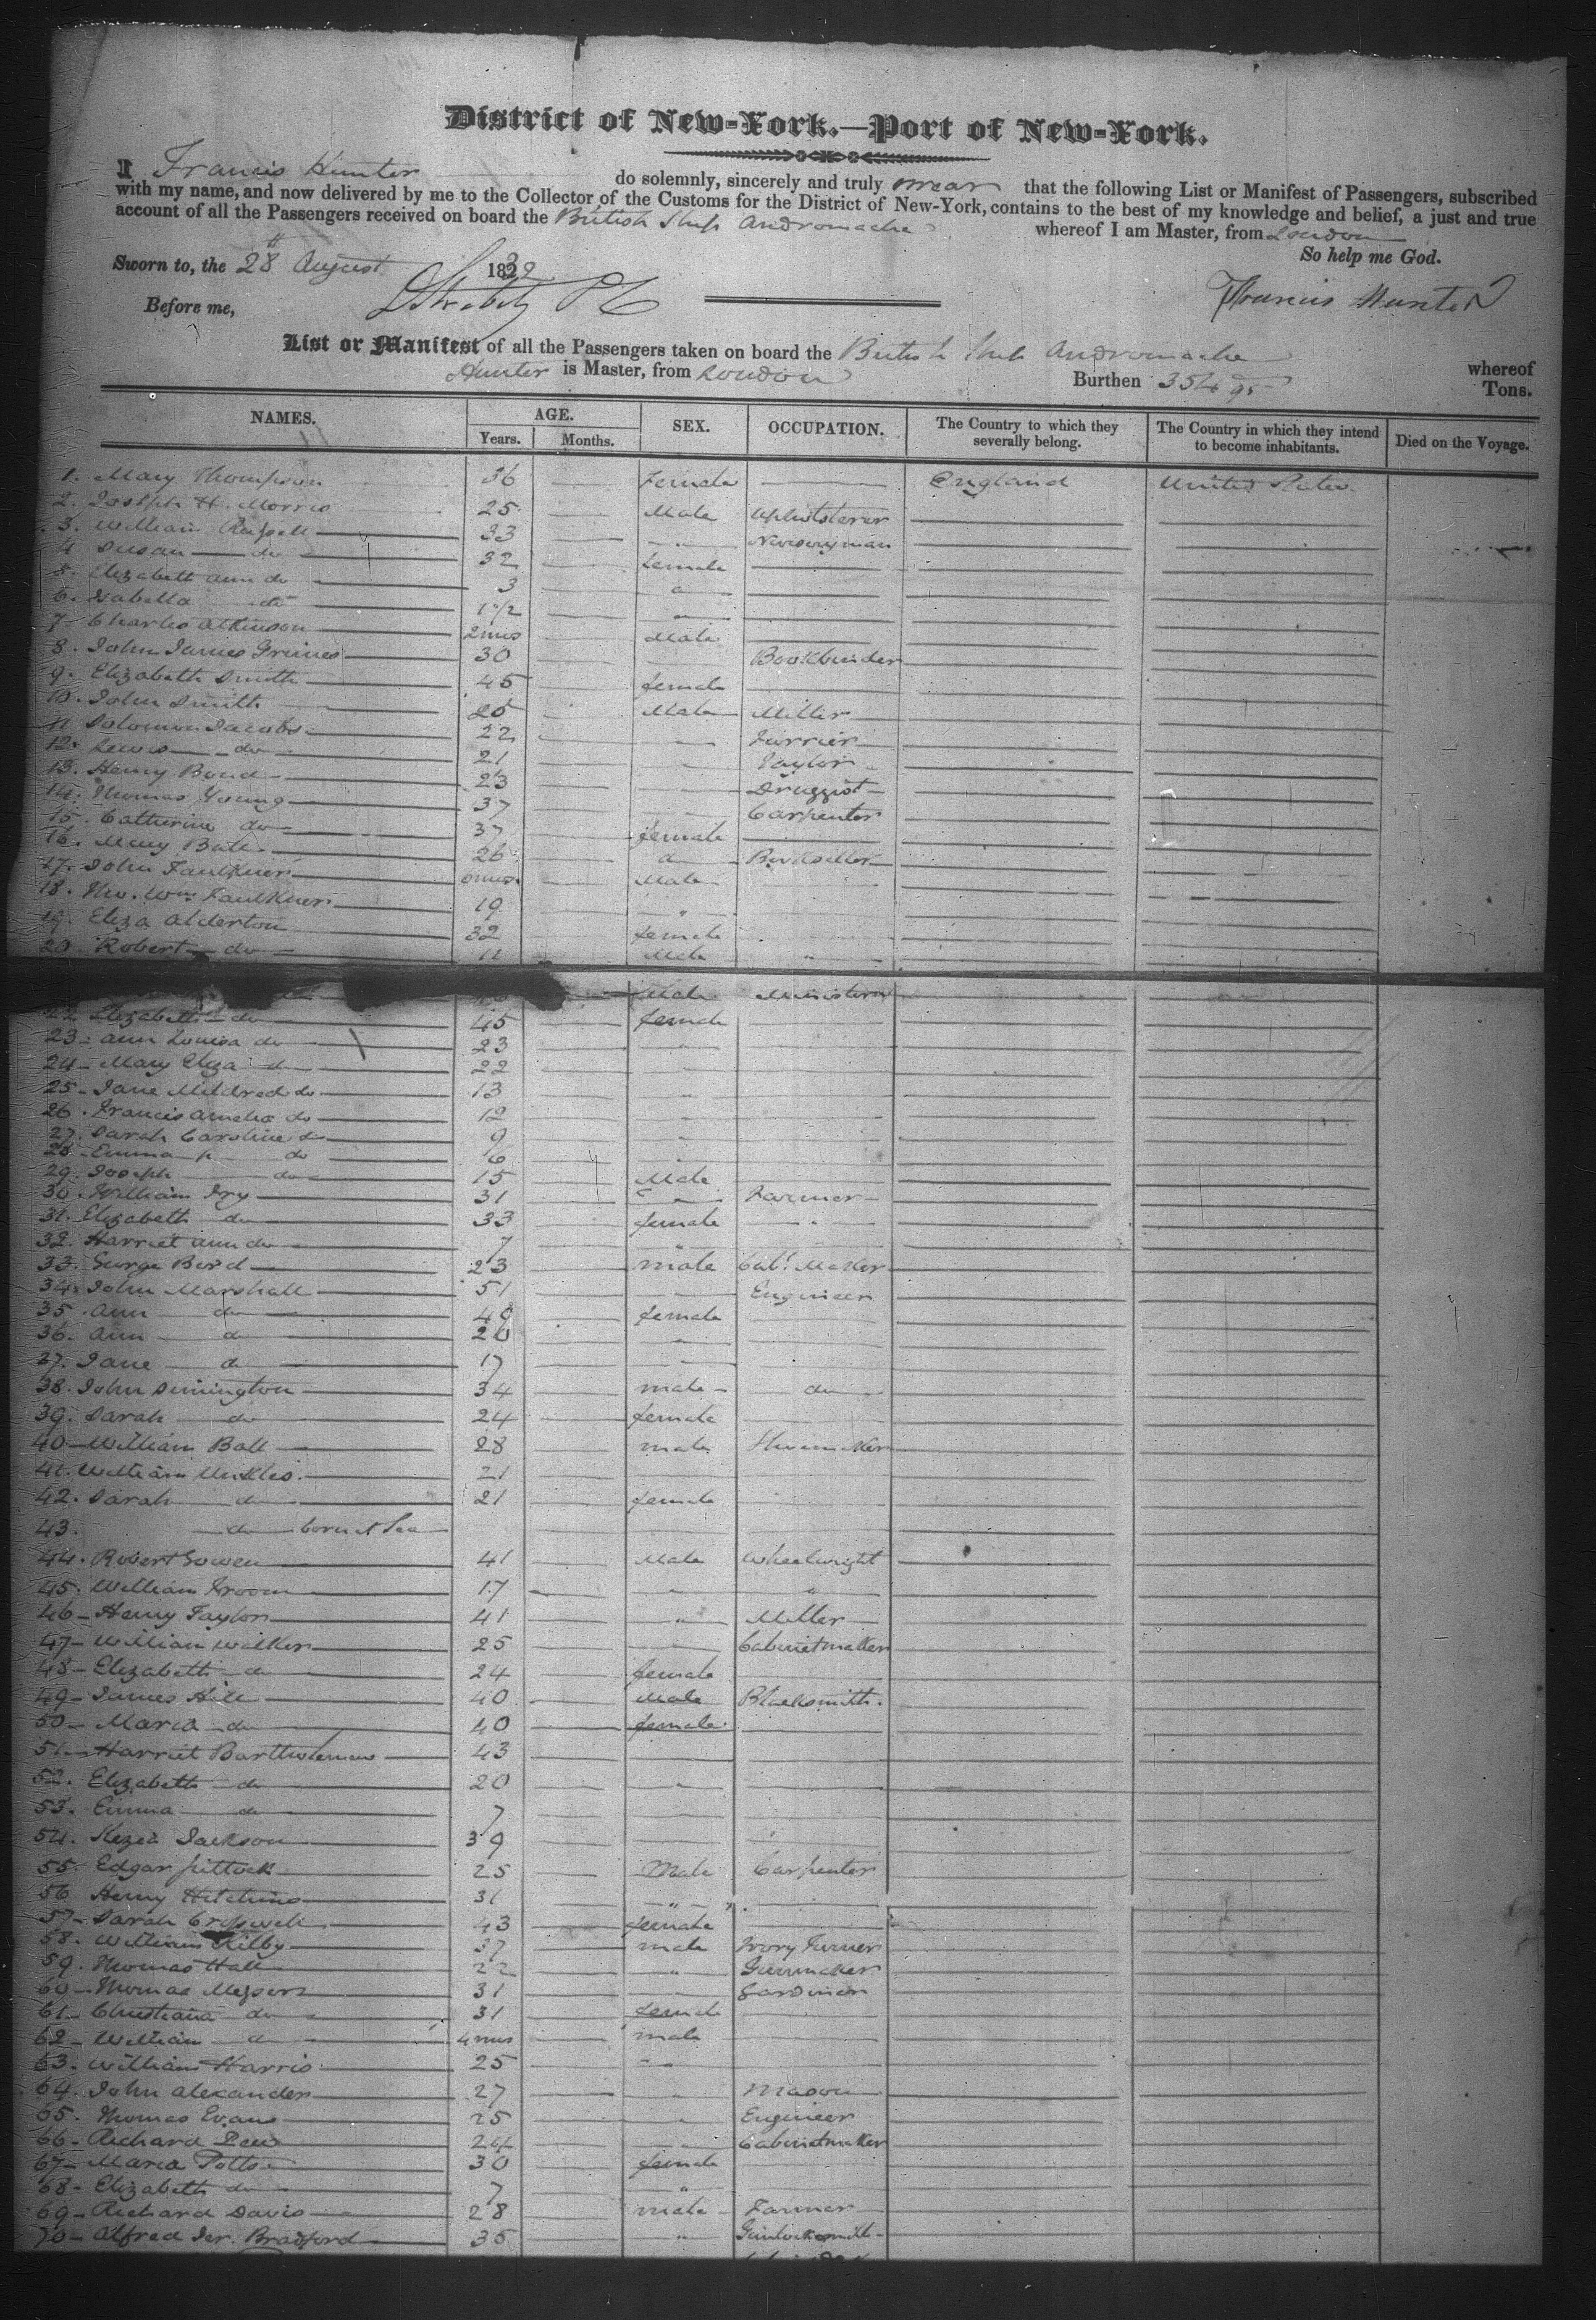 District of New-York.—Port of New-York.
I Francis Hunter do solemnly, sincerely and truly swear that the following List or Manifest of Passengers, subscribed
with my name, and now delivered by me to the Collector of the Customs for the District of New-York, contains to the best of my knowledge and belief, a just and true
account of all the Passengers received on board the British Ship Andromache whereof I am Master, from London
So help me God.
Sworn to, the 28th August 1832
Before me, Francis Hunter
List or Manifest of all the Passengers taken on board the British Ship Andromache whereof
Hunter is Master, from London Burthen 354 Tons.
NAMES. AGE. Years. Months. SEX. OCCUPATION. The Country to which they severally belong. The Country in which they intend to become inhabitants. Died on the Voyage.
1. Mary Thompson 36 Female England United States
2. Joseph H. Morris 25 Male Upholsterer
3. William Russell 33 " Nurseryman
4 Susan do 32 female
5. Elizabeth Ann do 3 "
6. Isabella do 1 1/2 "
7 Charles Atkinson 2 mos Male
8. John James Grimes 30 Bookbinder
9. Elizabeth Smith 45 female
10. John Smith 25 Male Miller
11 Solomon Jacobs 22 " Furrier
12. Lewis do 21 " Taylor
13. Henry Bond 23 " Druggist
14. Thomas Young 37 " Carpenter
15. Catherine do 37 female
16. Mary Bate 26 do Bookseller
17. John Faulkner mos Male
18. Wm. Faulkner 19 "
19. Eliza Alderton 32 female
20. Robert do 11 Male "
Male Minister
22. Elizabeth do 45 female
23 - Ann Louisa do 23 "
24 - Mary Eliza do 22 "
25 - Jane Mildred do 13 "
26. Francis Amelia do 12 "
27. Sarah Caroline do 9 "
28 - Emma do 6 "
29. Joseph do 15 Male
30. William Ivy 31 " Farmer
31. Elizabeth do 33 female
32. Harriet Ann do 7 "
33. George Bird 23 male Cabt. Maker
34. John Marshall 51 " Engineer
35. Ann do 49 female
36. Ann do 20 "
37. Jane do 17 "
38. John Dinnington 34 male do
39. Sarah do 24 female
40 - William Ball 28 male Shoemaker
41. William 21
42. Sarah do 21 female
43. do born at Sea
44. Robert Gowen 41 Male Wheelwright
45. William Groom 17 " "
46 - Henry Taylor 41 " Miller
47 - William Walker 25 " Cabinetmaker
48 - Elizabeth do 24 female
49 - James Hill 40 Male Blacksmith.
50 - Maria do 40 female
51 - Harriet Bartholomew 43
52. Elizabeth do 20 "
53. Emma do 7 "
54. Kezia Jackson 39 "
55. Edgar Pittock 25 Male Carpenter
56 Henry Hitchins 31 " "
57 - Sarah Cresswell 43 female
58. William Kilby 37 male Ivory Turner
59. Thomas Hall 22 " Gunmaker
60 - Thomas Messer 31 " Gardiner
61 - Christiana do 31 female
62 - William do 4 mos male
63. William Harris 25 "
64. John Alexander 27 " Mason
65. Thomas Evans 25 " Engineer
66 - Richard Dew 24 " Cabinetmaker
67 - Maria Potts 30 female
68 - Elizabeth do 7 "
69 - Richard Davis 28 male Farmer
70 - Alfred Jer. Bradford 35 " Gunlocksmith